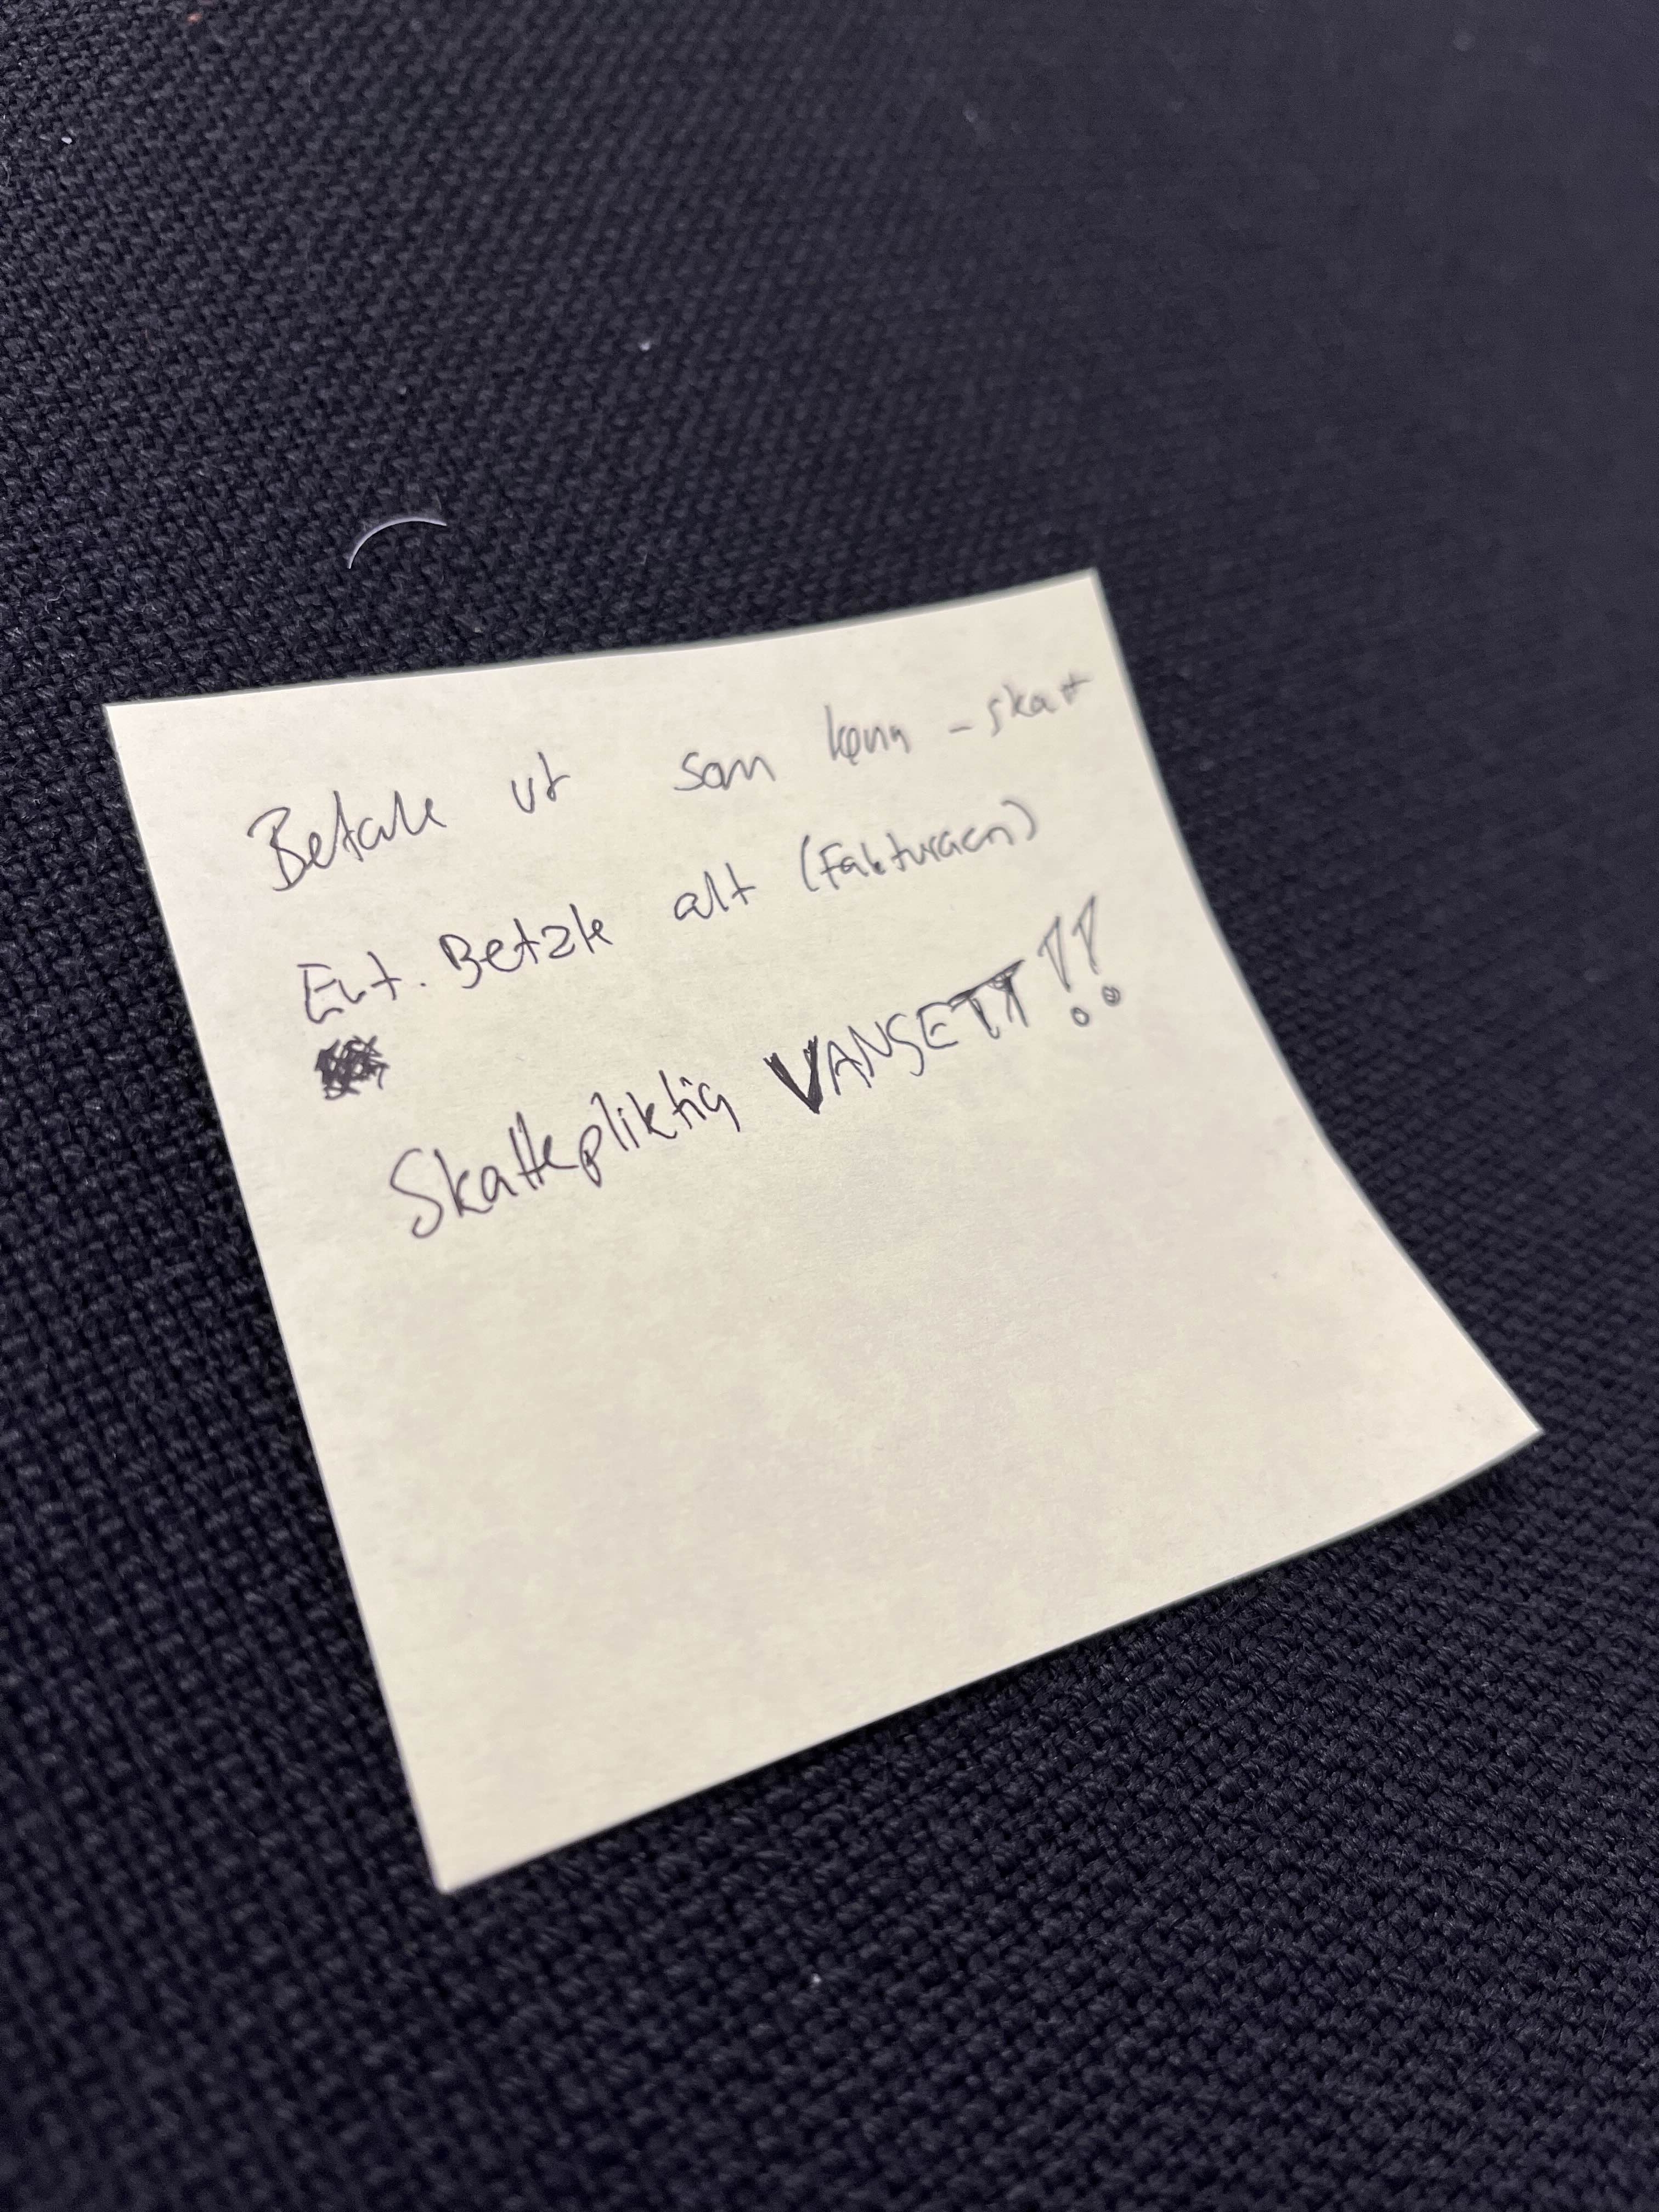 Betale ut som lønn - skatt
Evt. Betale alt (Fakturaen)
Skattepliktig UANSETT!!